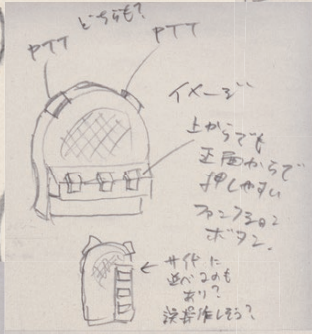 どちらも?
PTT
PTT
イメージ
上からでも
正面からでも
押しやすい
ファンクション
ボタン。
サイドに
並べるのも
あり?
誤操作しそう?